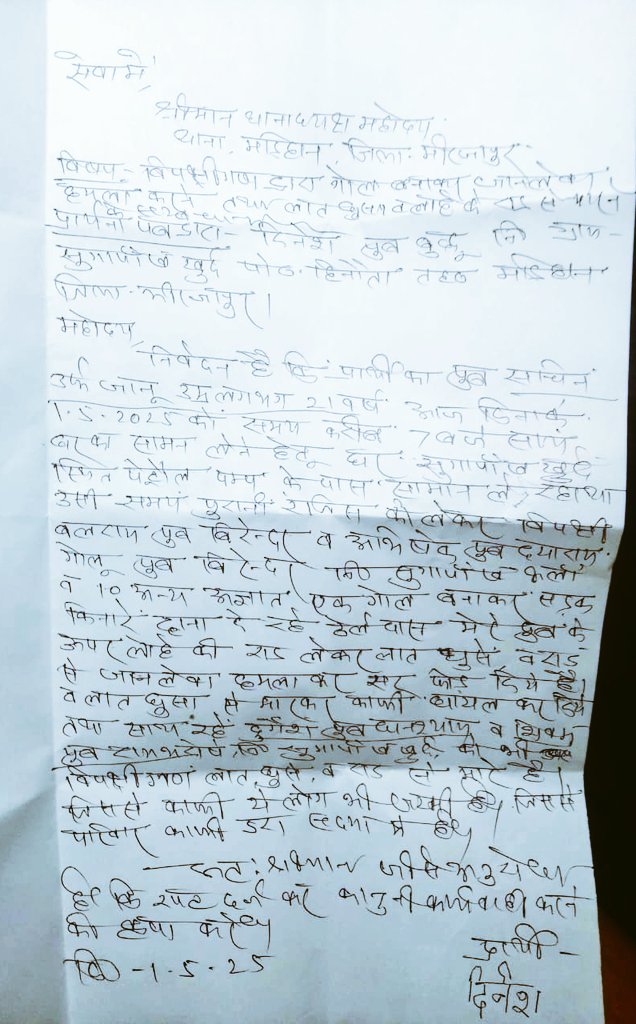 सेवा में,
श्रीमान थानाध्यक्ष महोदय
थाना. मड़िहान, जिला. मीरजापुर
विषय:- विपक्षीगण द्वारा गोल बनाकर जानलेवा
हमला करने तथा लात घुसा व लोहे के राड से मारने
प्रार्थना पत्र द्वारा- दिनेश पुत्र बुद्धू नि ग्राम-
सुगापांख खुर्द पो० हिनौता तह० मड़िहान
जिला. मीरजापुर।
महोदय,
निवेदन है कि प्रार्थी का पुत्र सचिन
उर्फ जानू उम्र लगभग 21 वर्ष आज दिनांक
1.5.2025 को समय करीब 7 बजे सायं
घर का सामन लेने हेतू घर सुगापांख खुर्द
स्थित पेट्रोल पम्प के पास सामान ले रहा था
उसी समय पुरानी रंजिस को लेकर विपक्षी
बलराम पुत्र बिरेन्दर व अभिषेक पुत्र दयाराम
गोलू पुत्र बिरेन्दर नि सुगापांख
व 10 अन्य अज्ञात एक गोल बनाकर सड़क
किनारे मेरे पुत्र के
ऊपर लोहे की राड लेकर लात घुसे व राड
से जानलेवा हमला कर सर फोड़ दिये है
व लात घुसा से मारकर काफी घायल कर दिये
तथा साथ रहे दुर्गेश पुत्र घनश्याम व शिवम
पुत्र नि सुगापांख खुर्द को भी
विपक्षीगण लात घुसे व राड से मारे है।
जिससे काफी ये लोग भी जख्मी है। जिससे
परिवार काफी डरा सदमा में है।
अतः श्रीमान जी से अनुरोध
है कि रपट दर्ज कर कानुनी कार्यवाही करने
की कृपा करे।
दि -1.5.25
प्रार्थी -
दिनेश